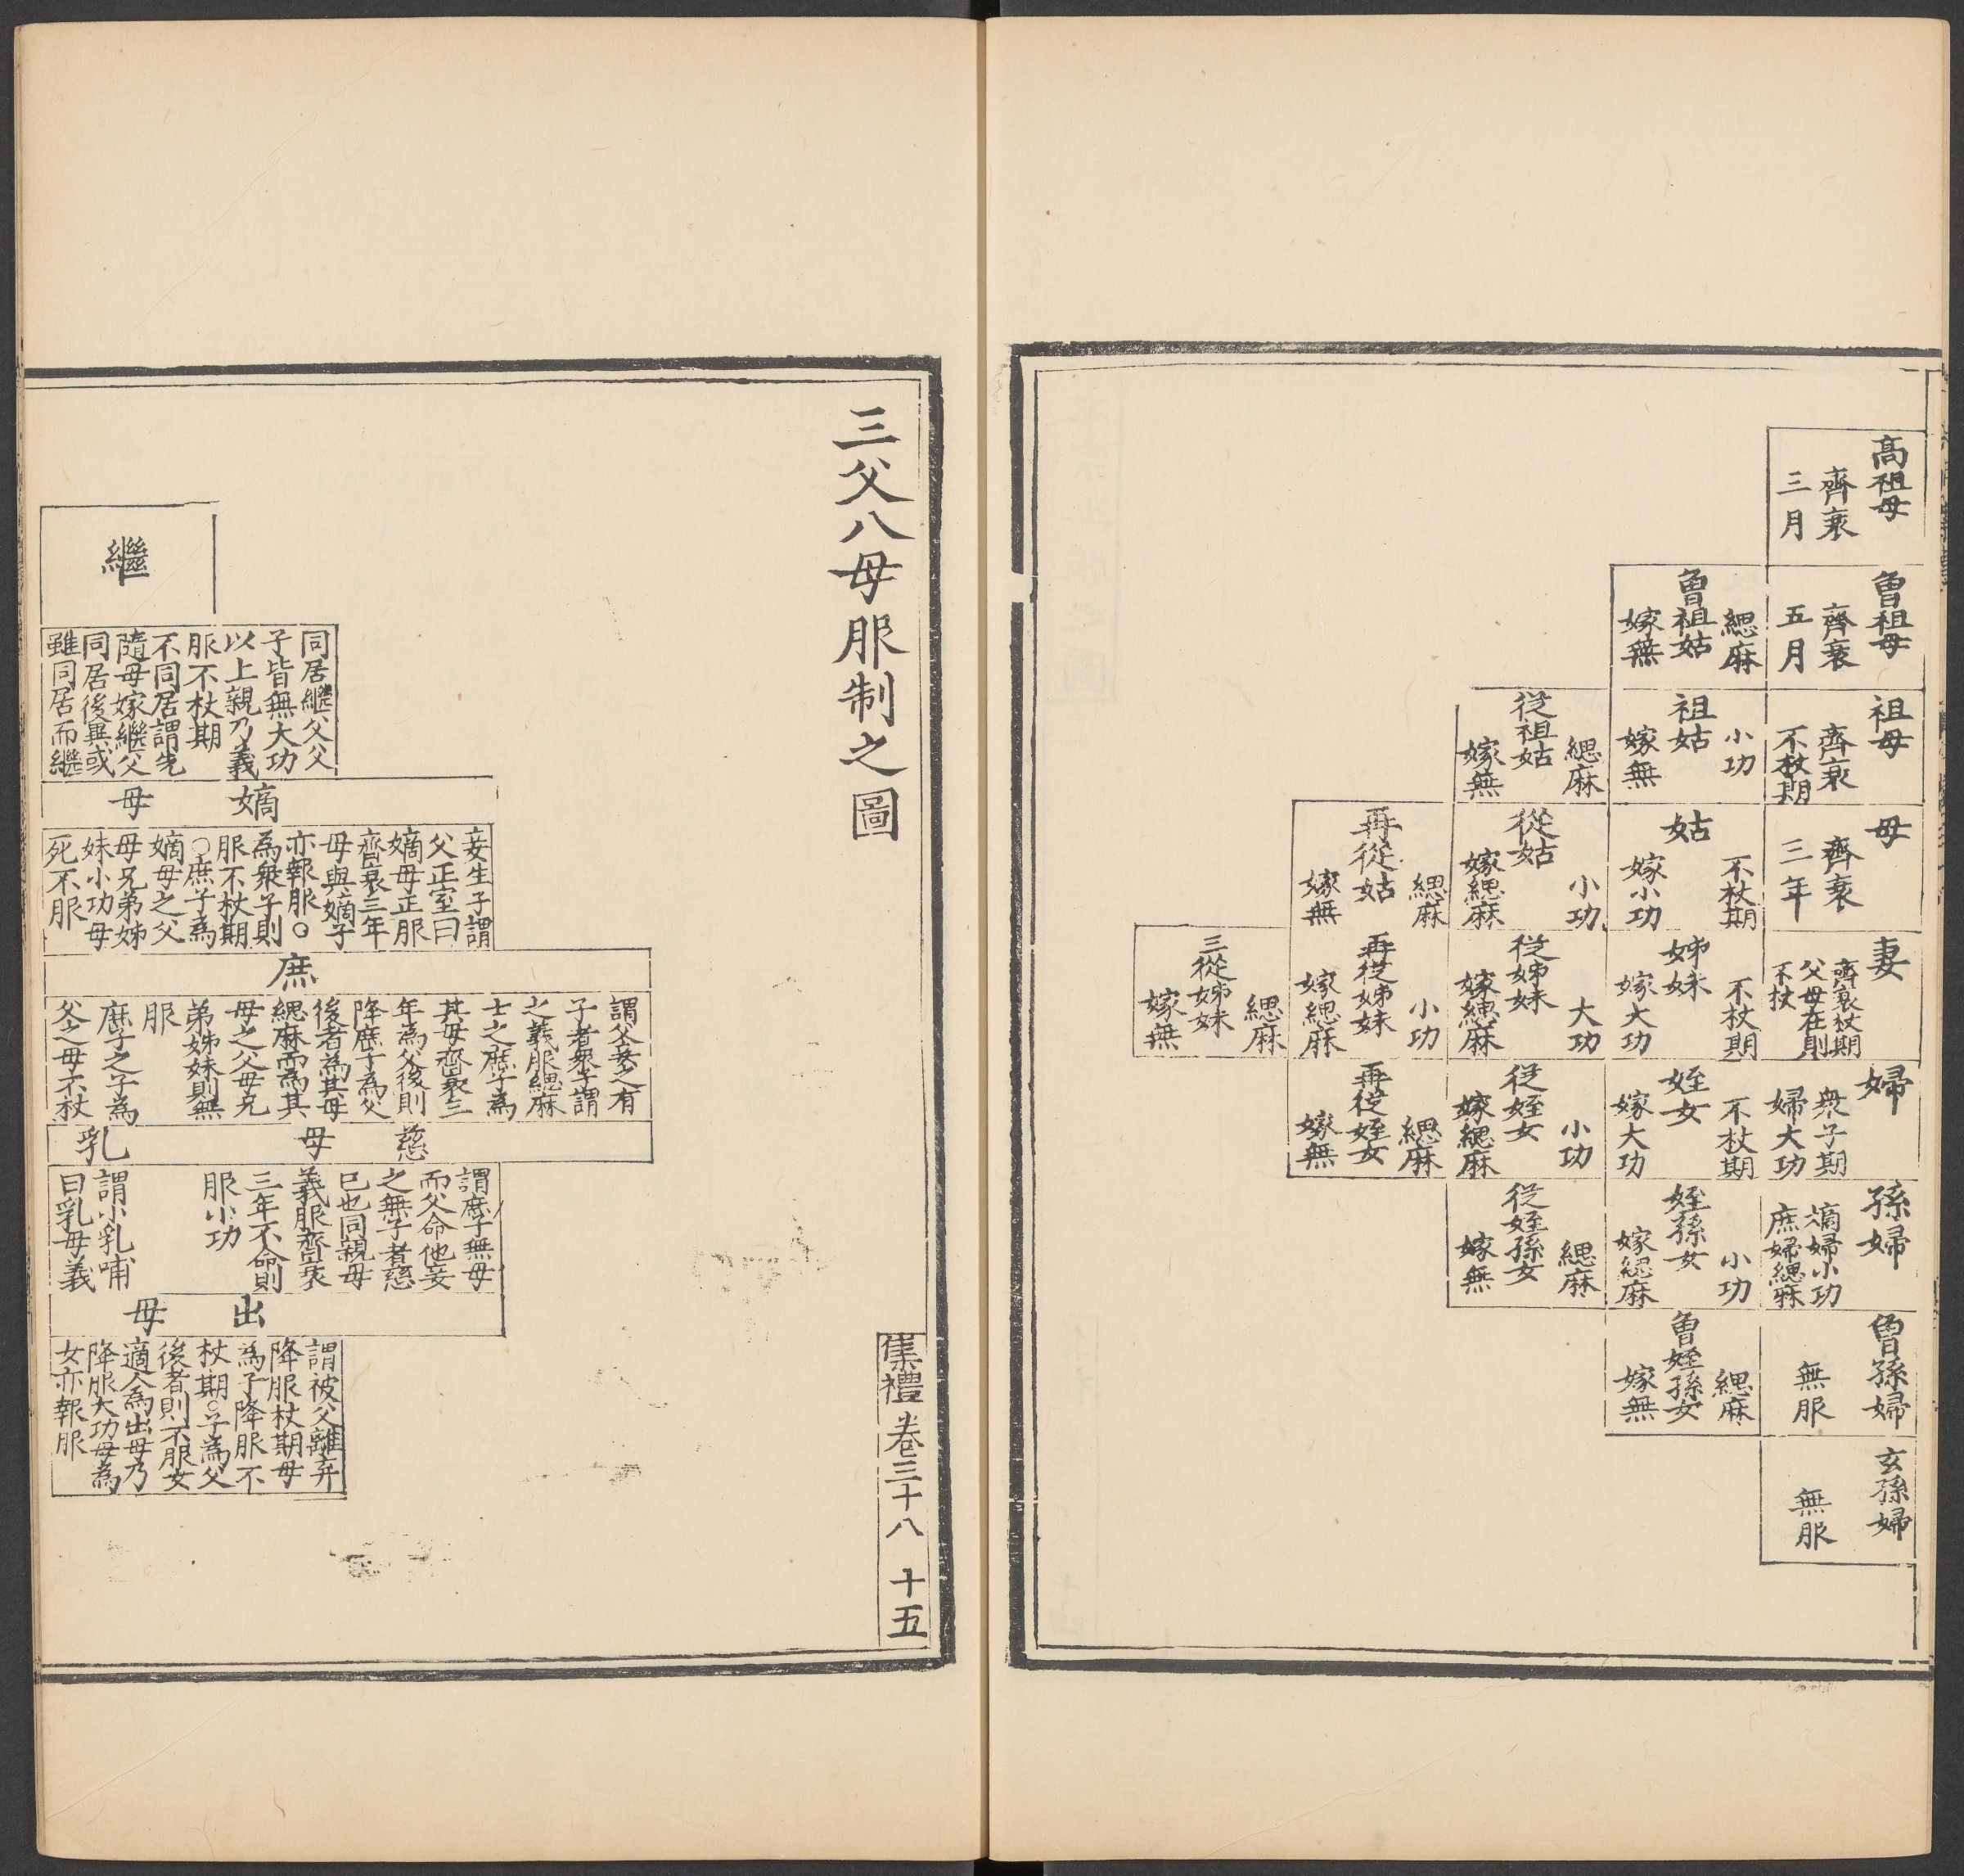 高祖母
齊衰
三月
曾祖母
齊衰
五月
緦麻
曾祖姑
嫁無
祖母
齊衰
不杖期
小功
祖姑
嫁無
緦麻
從祖姑
嫁無
母
齊衰
三年
不杖期
姑
嫁小功
小功
從姑
嫁緦麻
緦麻
再從姑
嫁無
妻
齊衰杖期
父母在則
不杖
不杖期
姊妹
嫁大功
大功
從姊妹
嫁緦麻
小功
再從姊妹
嫁緦麻
緦麻
三從姊妹
嫁無
婦
衆子期
婦大功
不杖期
姪女
嫁大功
小功
從姪女
嫁緦麻
緦麻
再從姪女
嫁無
孫婦
嫡婦小功
庶婦緦麻
小功
姪孫女
嫁緦麻
緦麻
從姪孫女
嫁無
曾孫婦
無服
緦麻
曾姪孫女
嫁無
玄孫婦
無服
三父八母服制之圖
集禮卷三十八 十五
繼
同居繼父父
子皆無大功
以上親乃義
服不杖期
不同居謂先
隨母嫁繼父
同居後異或
雖同居而繼
嫡母
妾生子謂
父正室曰
嫡母正服
齊衰三年
母與嫡子
亦報服○
為衆子則
服不杖期
○庶子為
嫡母之父
母兄弟姊
妹小功母
死不服
庶
謂父妾之有
子者衆子謂
之義服緦麻
士之庶子為
其母齊衰三
年為父後則
降庶子為父
後者為其母
緦麻而為其
母之父母兄
弟姊妹則無
服
庶子之子為
父之母不杖
慈母
乳
謂庶子無母
而父命他妾
之無子者慈
已也同親母
義服齊衰
三年不命則
服小功
謂小乳哺
曰乳母義
出母
謂被父離弃
降服杖期母
為子降服不
杖期○子為父
後者則不服女
適人為出母乃
降服大功母為
女亦報服